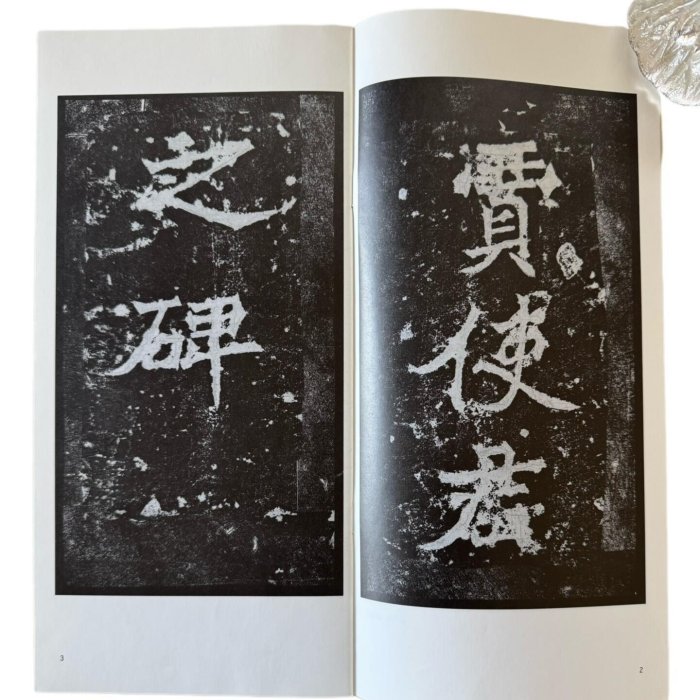 賈使君
之碑
2
3